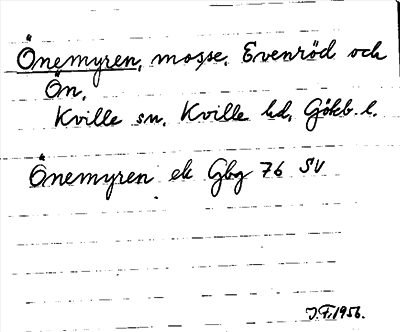 Önemyren, mosse, Evenröd och
Ön,
Kville sn, Kville hd, Gökb. l.
Önemyren ek Gbg 76 SV
J.F. 1956.